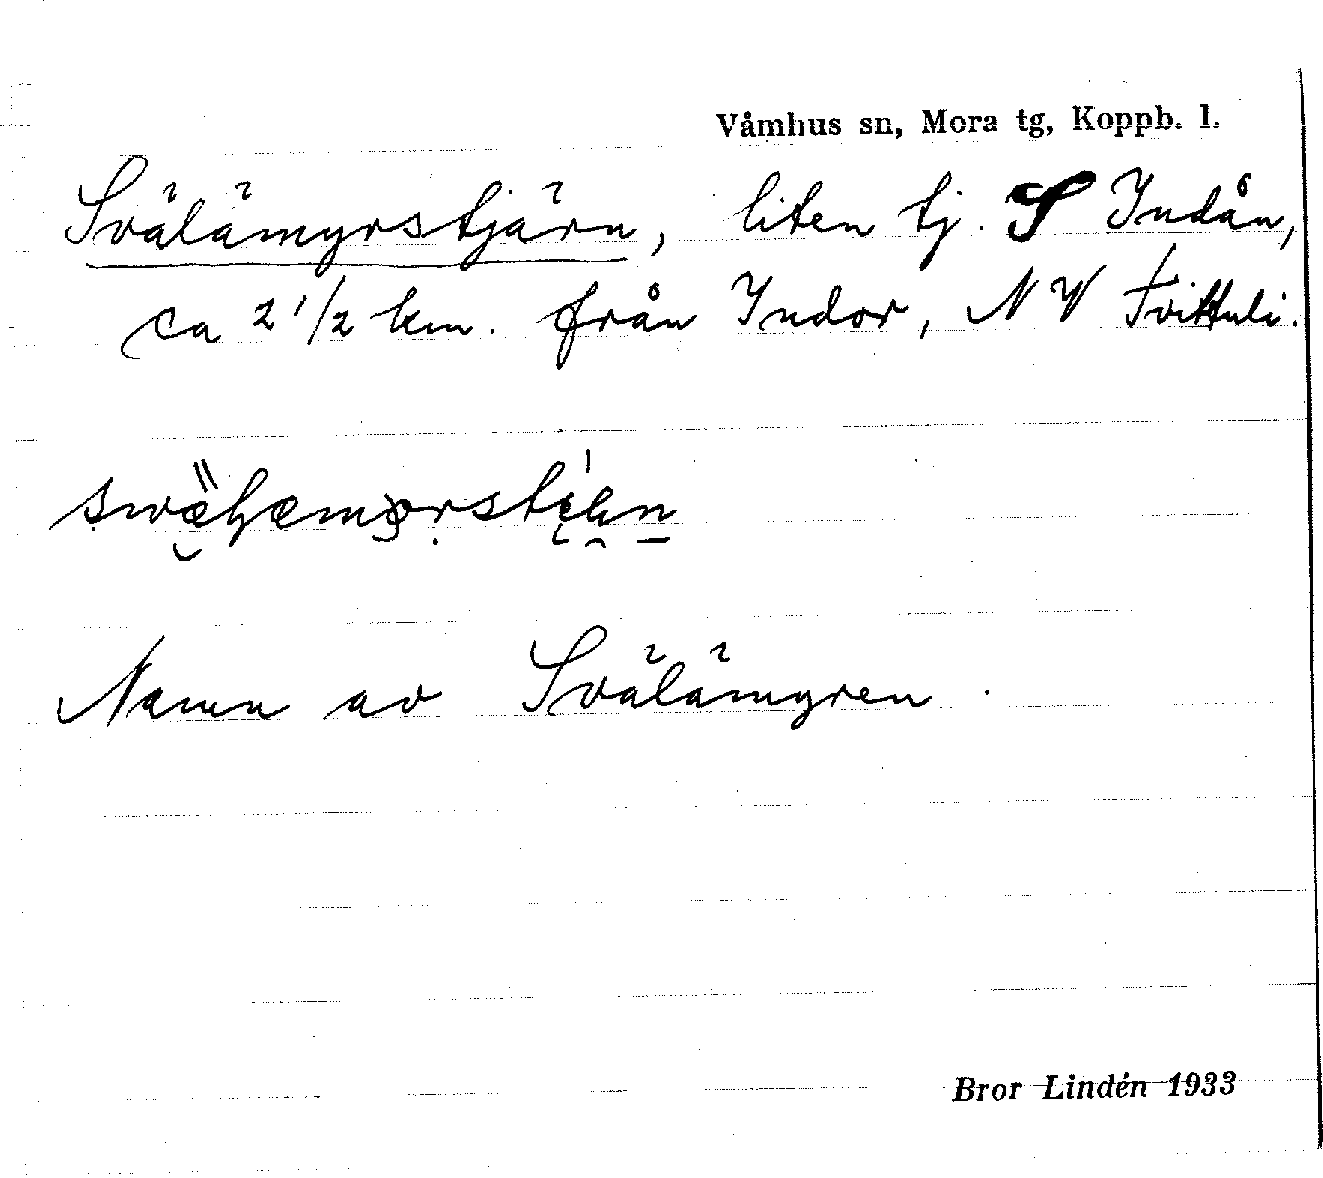 Våmhus sn, Mora tg, Koppb. l.
Svälämyrstjärn, liten tj. S Indån,
ca 2 1/2 km. från Indor, NV Tvittuli.
Namn av Svälämyren.
Bror Lindén 1933